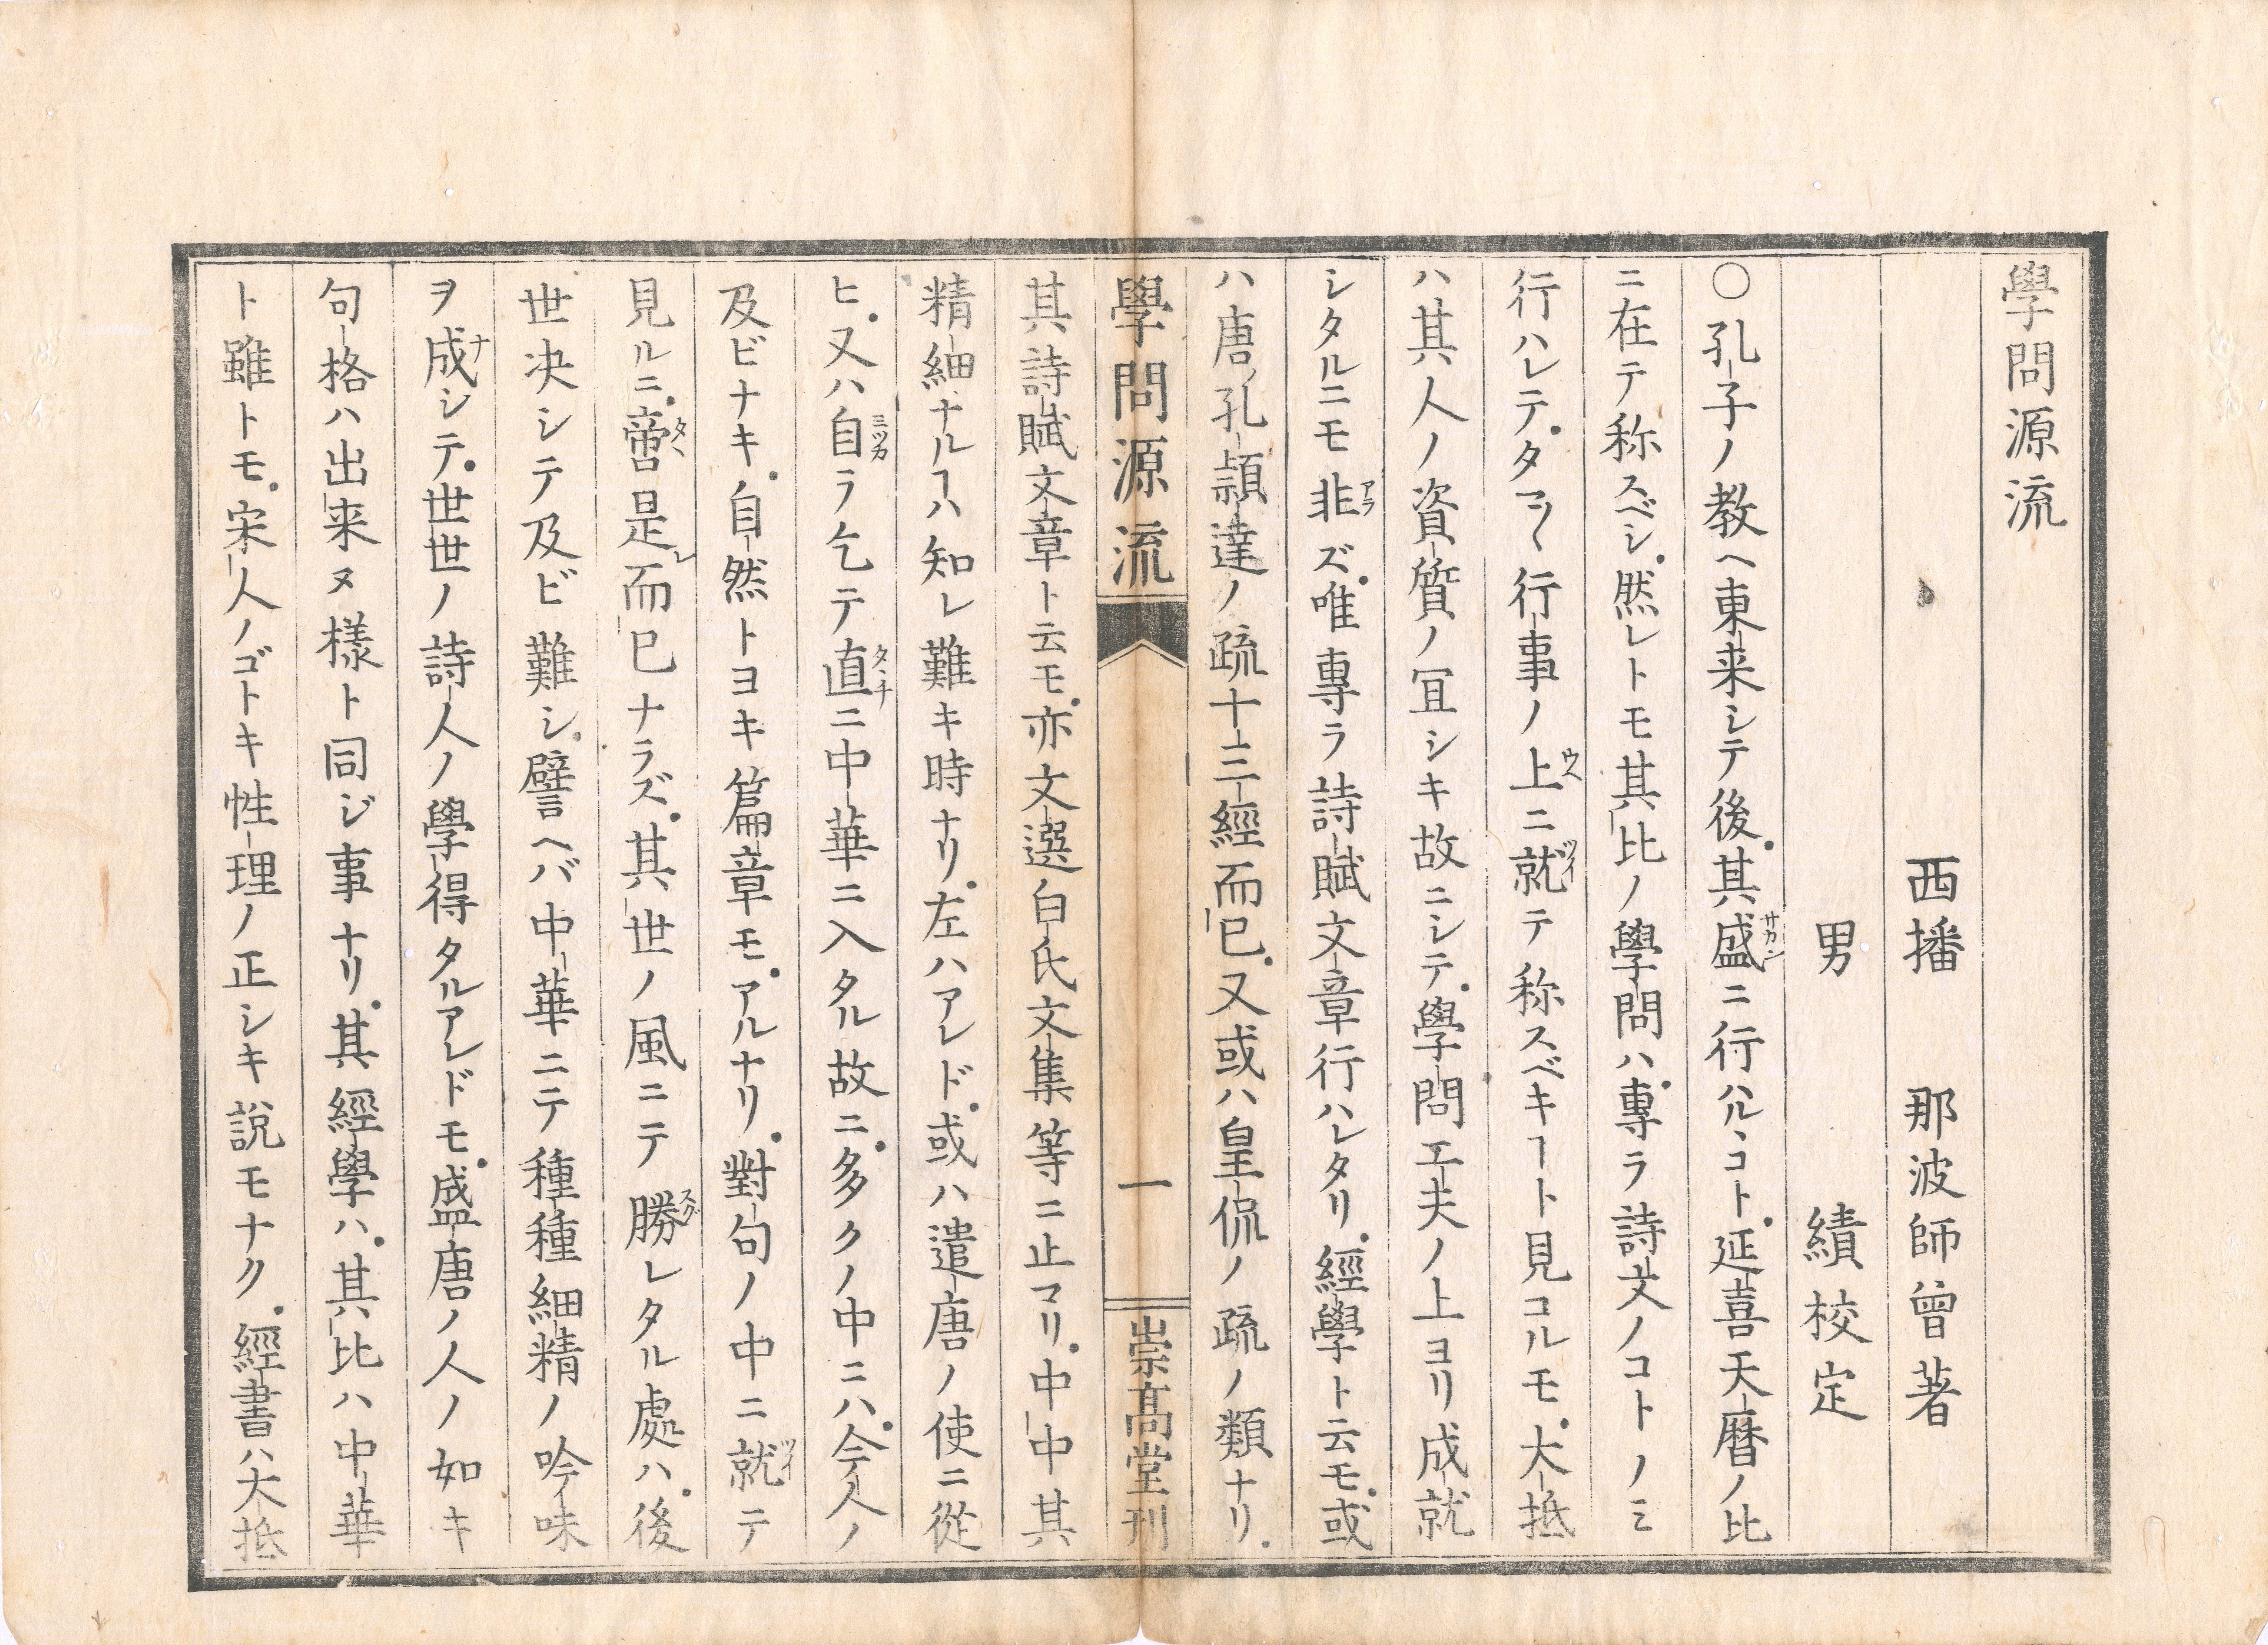 學問源流
西播 那波師曾著
男 績校定
〇孔子ノ教ヘ東来シテ後其盛ニ行ハルヽコト延喜天暦ノ比
ニ在テ称スベシ然レトモ其比ノ學問ハ專ラ詩文ノコトノミ
行ハレテタマ〱行事ノ上ニ就テ称スベキヿト見コルモ大抵
ハ其人ノ資質ノ冝シキ故ニシテ學問工夫ノ上ヨリ成就
シタルニモ非ズ唯專ラ詩賦文章行ハレタリ經學ト云モ或
ハ唐ノ孔頴達ノ疏十三經而已又或ハ皇侃ノ疏ノ類ナリ
學問源流 一 崇高堂刊
其詩賦文章ト云モ亦文選白氏文集等ニ止マリ中中其
精細ナルヿハ知レ難キ時ナリ左ハアレド或ハ遣唐ノ使ニ從
ヒ又ハ自ラ乞テ直ニ中華ニ入タル故ニ多クノ中ニハ今人ノ
及ビナキ自然トヨキ篇章モアルナリ對句ノ中ニ就テ
見ルニ啻是而已ナラズ其世ノ風ニテ勝レタル處ハ後
世决シテ及ビ難シ譬ヘバ中華ニテ種種細精ノ吟味
ヲ成シテ世世ノ詩人ノ學得タルアレドモ盛唐ノ人ノ如キ
句格ハ出来ヌ様ト同ジ事ナリ其經學ハ其比ハ中華
ト雖トモ宋人ノゴトキ性理ノ正シキ説モナク經書ハ大抵